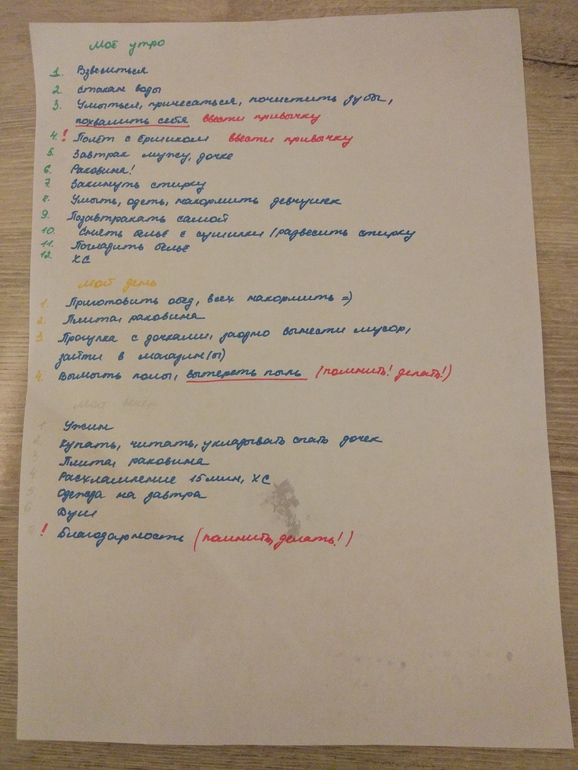 Моё утро
1. Взвеситься
2. Стакан воды
3. Умыться, причесаться, почистить зубы,
похвалить себя ввести привычку
4. ! Полёт с ёршиком ввести привычку
5. Завтрак мужу, дочке
6. Раковина!
7. Закинуть стирку
8. Умыть, одеть, накормить девчушек
9. Позавтракать самой
10. Снять бельё с сушилки/развесить стирку
11. Погладить бельё
12. ХС
Мой день
1. Приготовить обед, всех накормить =)
2. Плита, раковина
3. Прогулка с дочками, заодно вынести мусор,
зайти в магазин(ы)
4. Вымыть полы, вытереть пыль (помнить! делать!)
Мой вечер
1. Ужин
2. Купать, читать, укладывать спать дочек
3. Плита, раковина
4. Расхламление 15 мин, ХС
5. Одежда на завтра
6. Душ
! Благодарность (помнить, делать!)